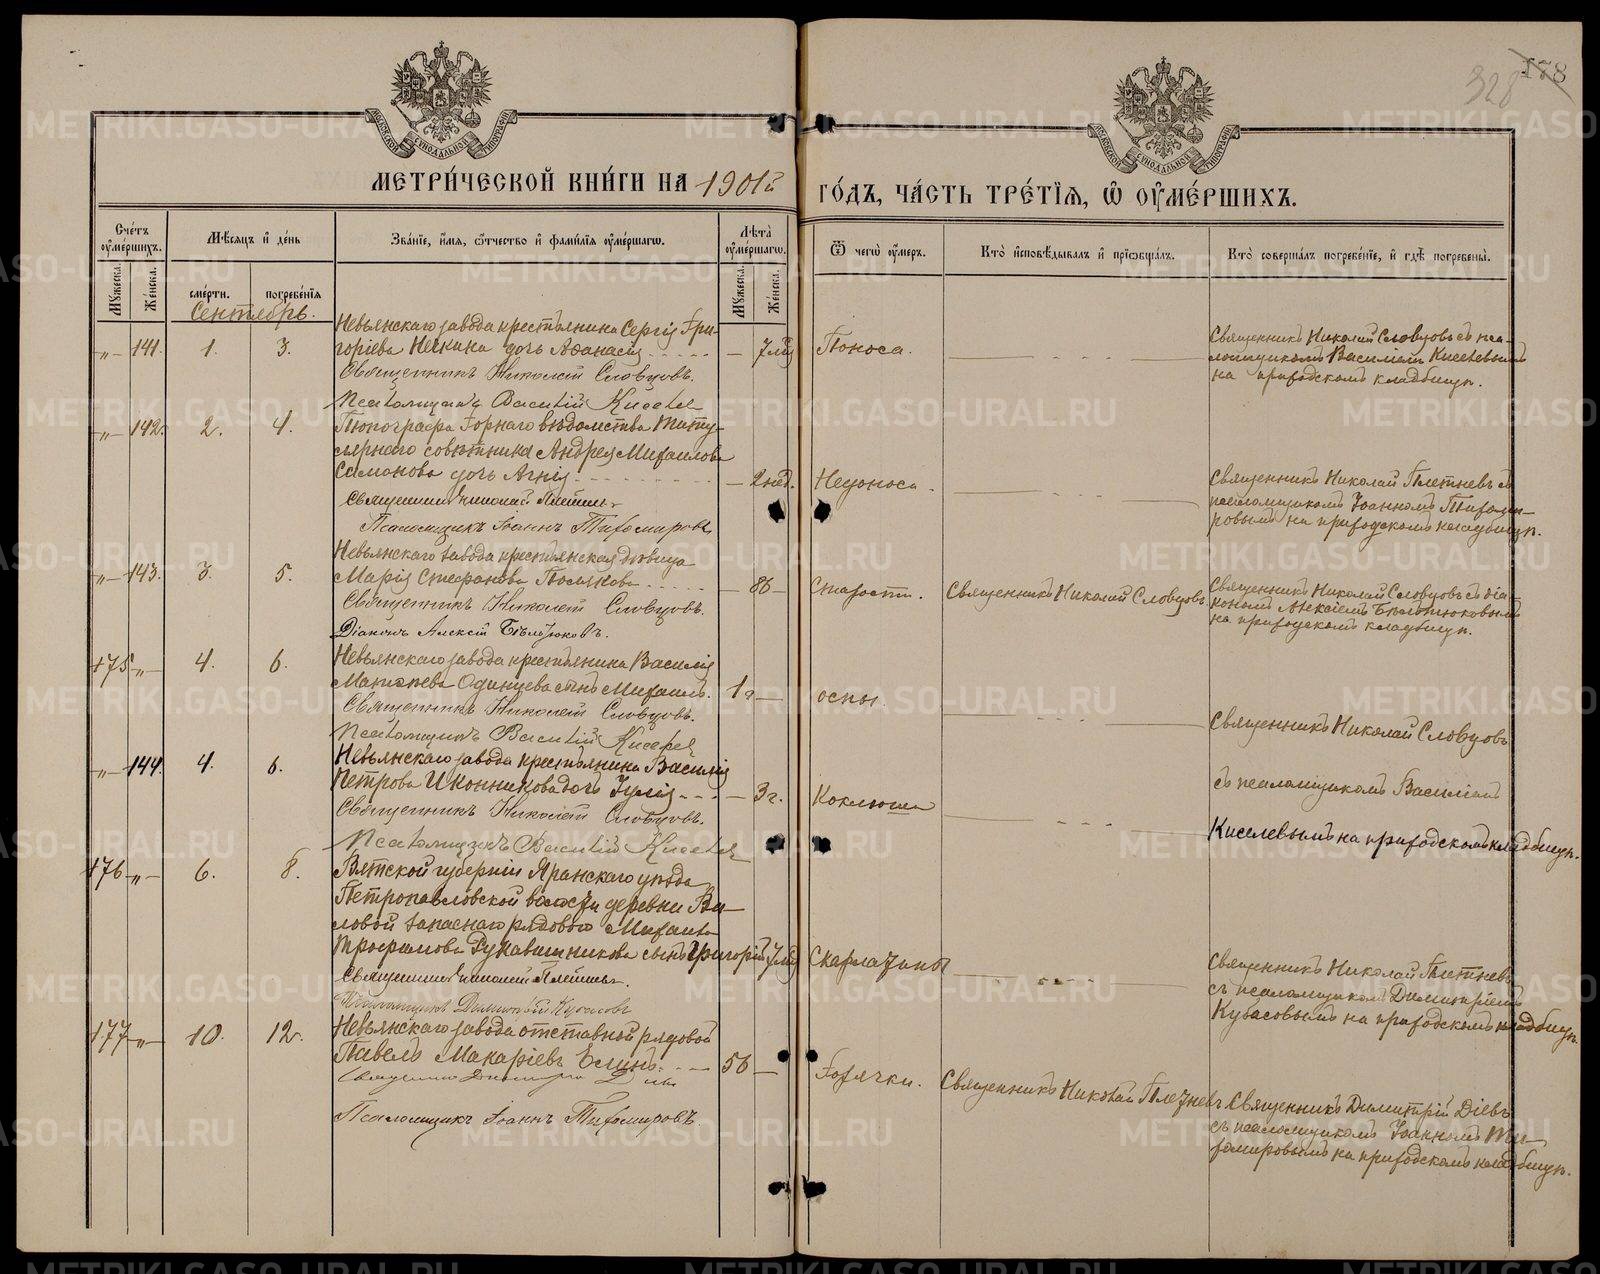 178
328
МОСКОВСКОЙ СѴНОДАЛЬНОЙ ТИПОГРАФІИ
МОСКОВСКОЙ СѴНОДАЛЬНОЙ ТИПОГРАФІИ
МЕТРИ́ЧЕСКОЙ КНИ́ГИ НА 1901й ГО́ДЪ, ЧА́СТЬ ТРЕ́ТІЯ, Ѡ ОУ҆МЕ́РШИХЪ.
Сче́тъ оу҆ме́ршихъ.
Мꙋжеска.
Же́нска.
Мѣ́сяцъ и҆ де́нь
сме́рти.
погребе́нїя
Зва́нїе, и҆́мя, ѻ҆́тчество и҆ фамі́лїя оу҆ме́ршагѡ.
Лѣ́та оу҆ме́ршагѡ.
Мꙋжеска.
Же́нска.
Ѿ чегѡ̀ оу҆́меръ.
Кто̀ и҆сповѣ́дывалъ и҆ прїѡбща́лъ.
Кто̀ соверша́лъ погребе́нїе, и҆ гдѣ̀ погребены̀.
Сентябрь.
-„- 141. 1. 3.
Невьянскаго завода крестьянина Сергія Гри-
горіева Неткина дочь Аѳанасія
Священникъ Николай Словцовъ.
Псаломщикъ Василій Киселев
— 7 мѣс
Поноса.
Священникъ Николай Словцовъ съ пса-
ломщикомъ Василіемъ Киселевымъ
на приходскомъ кладбищѣ.
-„- 142. 2. 4.
Топографа Горнаго вѣдомства Титу-
лярнаго совѣтника Андрея Михаилова
Самонова дочь Агнія
Священникъ Николай Плетневъ
Псаломщикъ Іоаннъ Тихомировъ
— 2 нед.
Недоноса.
Священникъ Николай Плетневъ съ
псаломщикомъ Іоанномъ Тихоми-
ровымъ на приходскомъ кладбищѣ.
-„- 143. 3. 5.
Невьянскаго завода крестьянская дѣвица
Марія Стефанова Полякова
Священникъ Николай Словцовъ.
Діаконъ Алексій Бѣлозюковъ.
— 86 —
Старости.
Священникъ Николай Словцовъ.
Священникъ Николай Словцовъ съ діа-
кономъ Алексіемъ
на приходскомъ кладбищѣ.
175 -„- 4. 6.
Невьянскаго завода крестьянина Василія
Одинцева сынъ Михаилъ.
Священникъ Николай Словцовъ.
Псаломщикъ Василій Киселев
1 г —
оспы.
Священникъ Николай Словцовъ
-„- 144. 4. 6.
Невьянскаго завода крестьянина Василія
Петрова Иконникова дочь Іулія
Священникъ Николай Словцовъ.
Псаломщикъ Василій Киселев
— 3 г.
Коклюша
съ псаломщикомъ Василіемъ
Киселевымъ на приходскомъ кладбищѣ.
176 -„- 6. 8.
Вятской губерніи Яранскаго уѣзда
Петропавловской волости деревни Ви-
ловой запаснаго рядового Михаила
Трофимова Рукавишникова сынъ Григорій 7 мѣс
Священникъ Николай Плетневъ.
Псаломщикъ Димитрій Кувасовъ
Скарлатины
Священникъ Николай Плетневъ
съ псаломщикомъ Димитріемъ
Кувасовымъ на приходскомъ кладбищѣ.
177 -„- 10. 12.
Невьянскаго завода отставной рядовой
Павелъ Макаріевъ Елинъ.
Священникъ Димитрій Діевъ
Псаломщикъ Іоаннъ Тихомировъ.
56 —
Горячки.
Священникъ Николай Плетневъ
Священникъ Димитрій Діевъ
съ псаломщикомъ Іоанномъ Ти-
хомировымъ на приходскомъ кладбищѣ.
METRIKI.GASO-URAL.RU